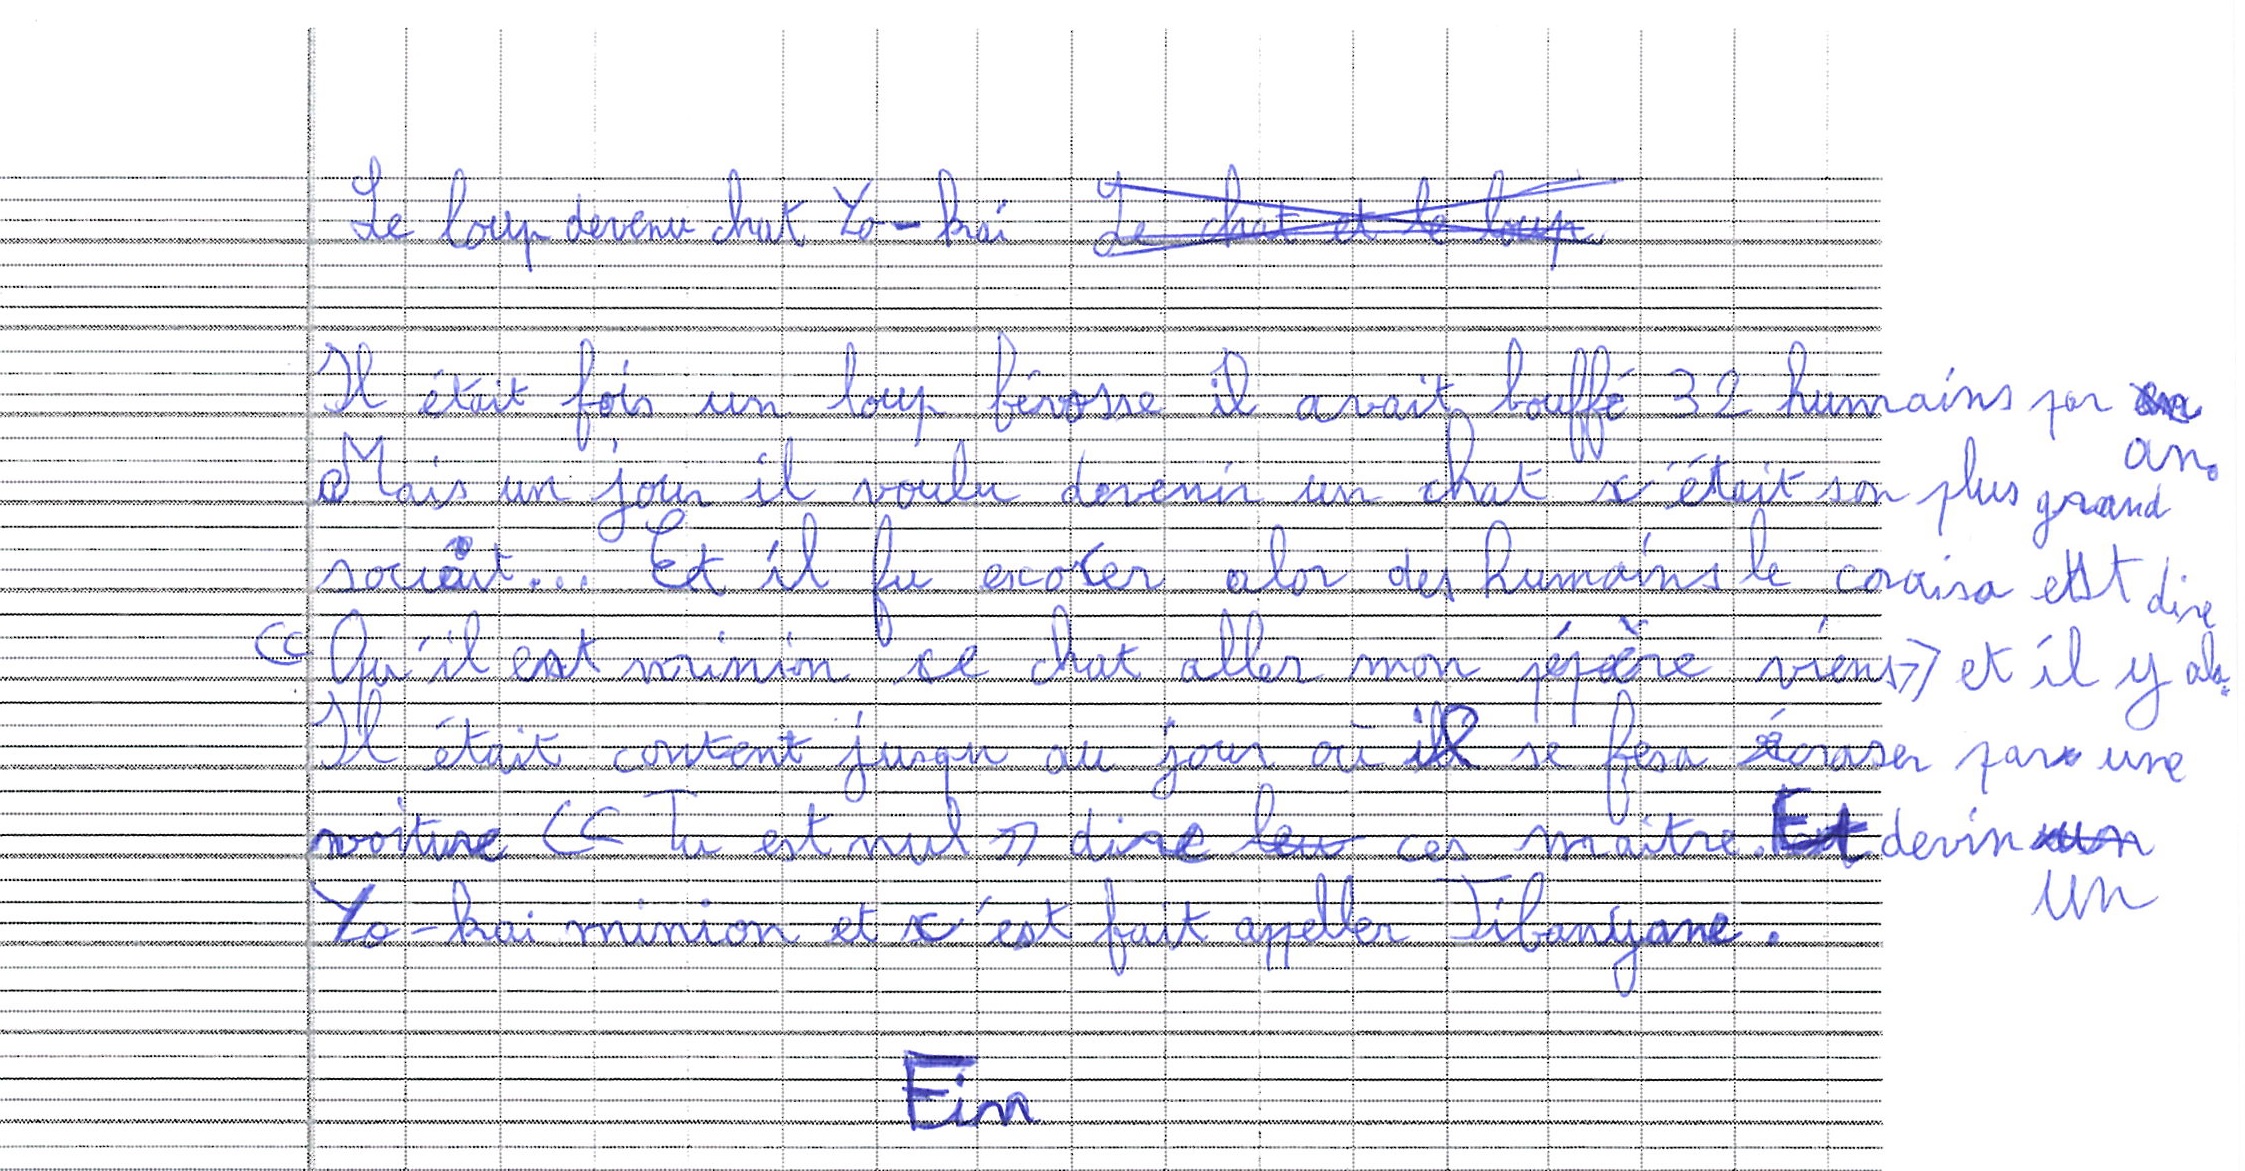 Le loup devenu chat Yo-kai Le chat et le loup
Il était fois un loup férosse il avait bouffé 32 humains par an.
Mais un jour il voulu devenir un chat c'était son plus grand
souait... Et il fu exocer alor des humains le coraisa et dire
« Qu'il est minion ce chat aller mon pépère viens » et il y ala.
Il était content jusqu au jour où il se fesa écraser par une
voiture « Tu est nul » dire ces maitre. Et devin un
Yo-kai minion et c'est fait appeller Jibanyane.
Fin